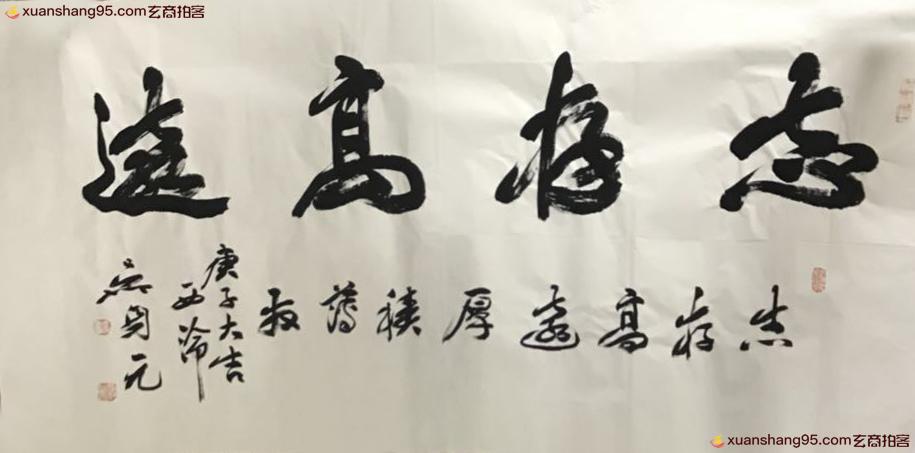 xuanshang95.com玄商拍客
志存高远
志存高远厚積薄發
庚子大吉
西泠
吴開元
xuanshang95.com玄商拍客